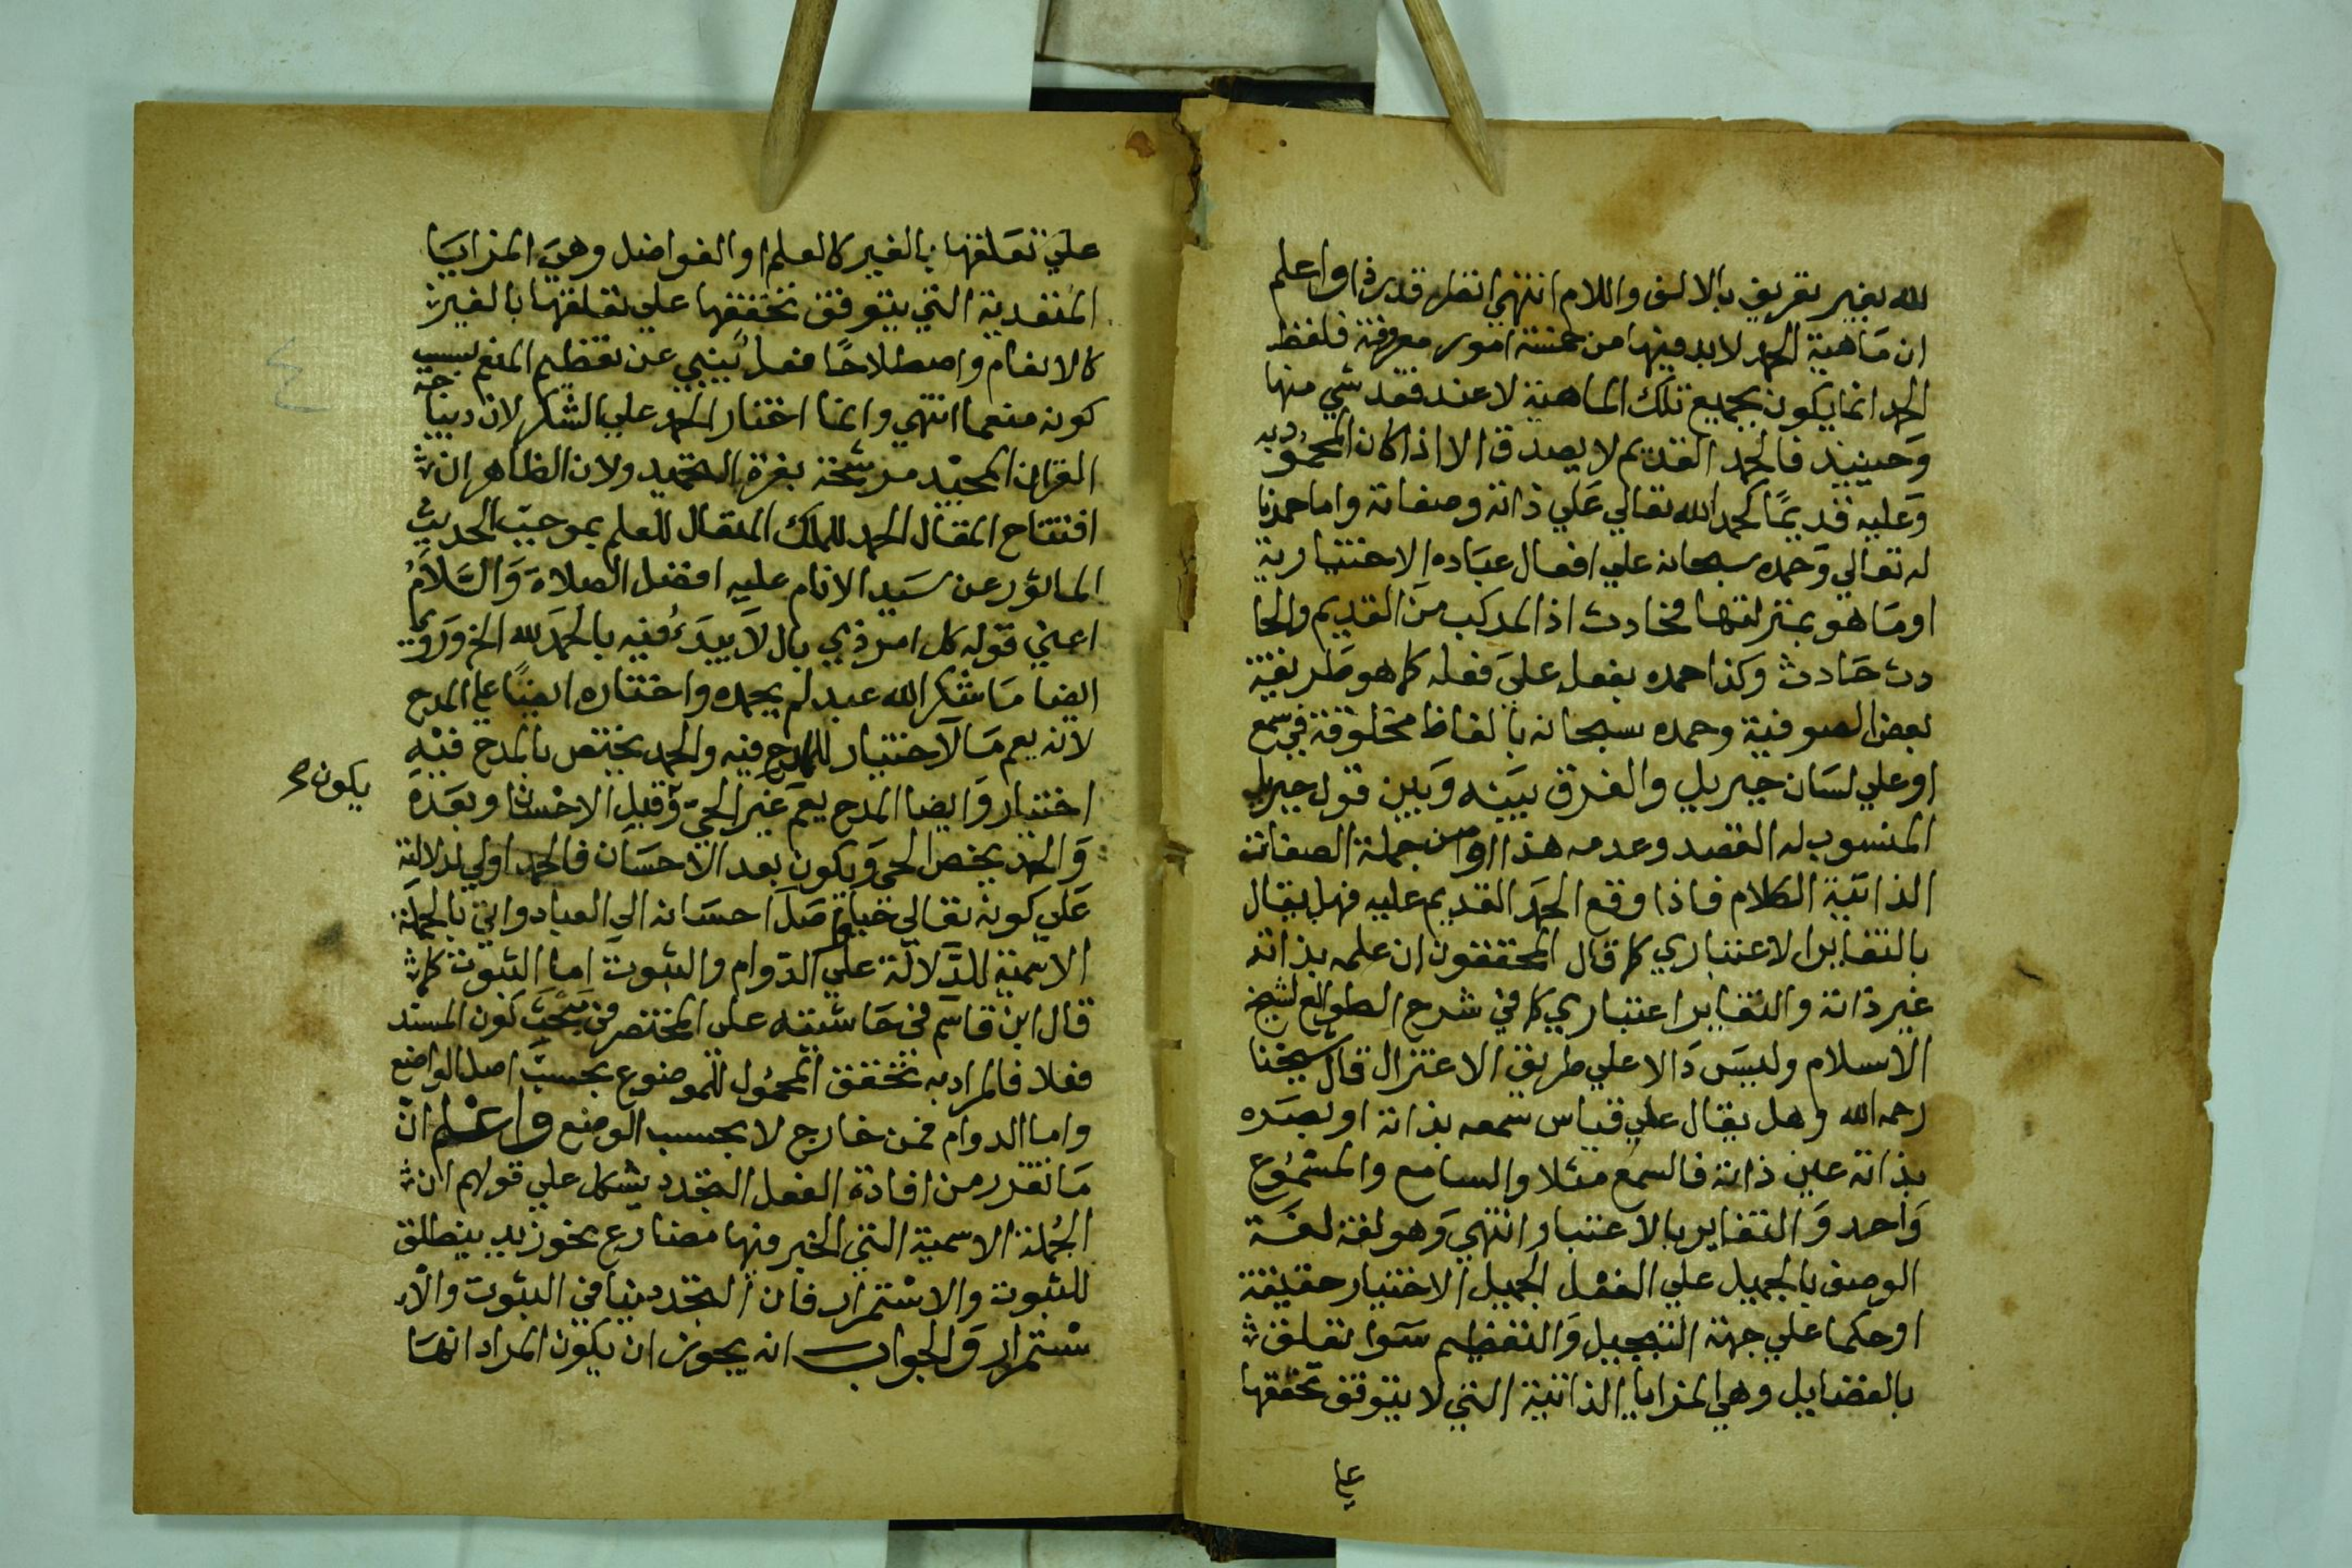 لله بغير تعريف بالالف واللام انتهي انظر قدره اواعلم
ان ماهية الحمد لابد فيها من خمسة امور معروفة فلفظ
الحمد انما يكون بجميع تلك الماهية لا عند فقد شي منها
وحينيذ فالحمد القديم لا يصدق الا اذا كان المحمود به
وعليه قديمًا كحمد الله تعالي علي ذاته وصفاته واما حمدنا
له تعالي وحمده سبحانه علي افعال عباده الاختيارية
اوما هو بمنزلتها فحادث اذ المركب من القديم والحا
دث حادث وكذا حمده بفعل علي فعله كما هو طريقة
بعض الصوفية وحمده سبحانه بالفاظ مخلوقة في سمع
او علي لسان جبريل والفرق بينه وبين قول جبريل
المنسوب له القصد وعدمه هذا ومن جملة الصفات
الذاتية الكلام فاذا وقع الحمد القديم عليه فهل يقال
بالتغاير الاعتباري كما قال المحققون ان علمه بذاته
غير ذاته والتغاير اعتباري كما في شرح الطوالع لشيخ
الاسلام وليس ذالا علي طريق الاعتزال قال شيخنا
رحمه الله وهل يقال علي قياس سمعه بذاته او بصره
بذاته عين ذاته فالسمع مثلا والسامع والمسموع
واحد والتغاير بالاعتبار انتهي وهو لغة لغة
الوصف بالجميل علي الفعل الجميل الاختيار حقيقة
او حكما علي جهة التبجيل والتعظيم سوا تعلق
بالفضايل وهي المزايا الذاتية التي لا يتوقف تحققها
علي
علي تعلقها بالغير كالعلم او الفواضل وهي المزايا
المتعدية التي يتوقف تحققها علي تعلقها بالغير
كالانعام واصطلاحًا فعل ينبي عن تعظيم المنعم بسبب
كونه منعما انتهي وانما اختار الحمد علي الشكر لان ديباجة
القران المجيد مرشحة بغرة التحميد ولان الظاهر ان
افتتاح المقال الحمد للملك المتعال للعلم بموجب الحديث
الماثور عن سيد الانام عليه افضل الصلاة والسلام
اعني قوله كل امر ذي بال لا يبدء فيه بالحمد لله الخ وروي
ايضا ما شكر الله عبد لم يحمده واختاره ايضًا علي المدح
لانه يعم ما لا اختيار للمدح فيه والحمد يختص بالمدح فيه
اختيار وايضا المدح يعم غير الحي وقبل الاحسان وبعده
يكون
والحمد يخص الحي ويكون بعد الاحسان فالحمد اولي لدلالته
علي كونه تعالي حيا وصل احسانه الي العباد واتي بالجملة
الاسمية للدلالة علي الدوام والثبوت اما الثبوت كما
قال ابن قاسم في حاشيته علي المختصر في مبحث كون المسند
فعلا فالمراد به تحقق المحمول للموضوع بحسب اصل الواضع
واما الدوام فمن خارج لا بحسب الوضع واعلم ان
ما تقدر من افادة الفعل التجدد يشكل علي قولهم ان
الجملة الاسمية التي الخبر فيها مضارع نحو زيد ينطلق
للثبوت والاستمرار فان التجدد ينافي الثبوت والا
ستمرار والجواب انه يجوز ان يكون المراد انها
٤